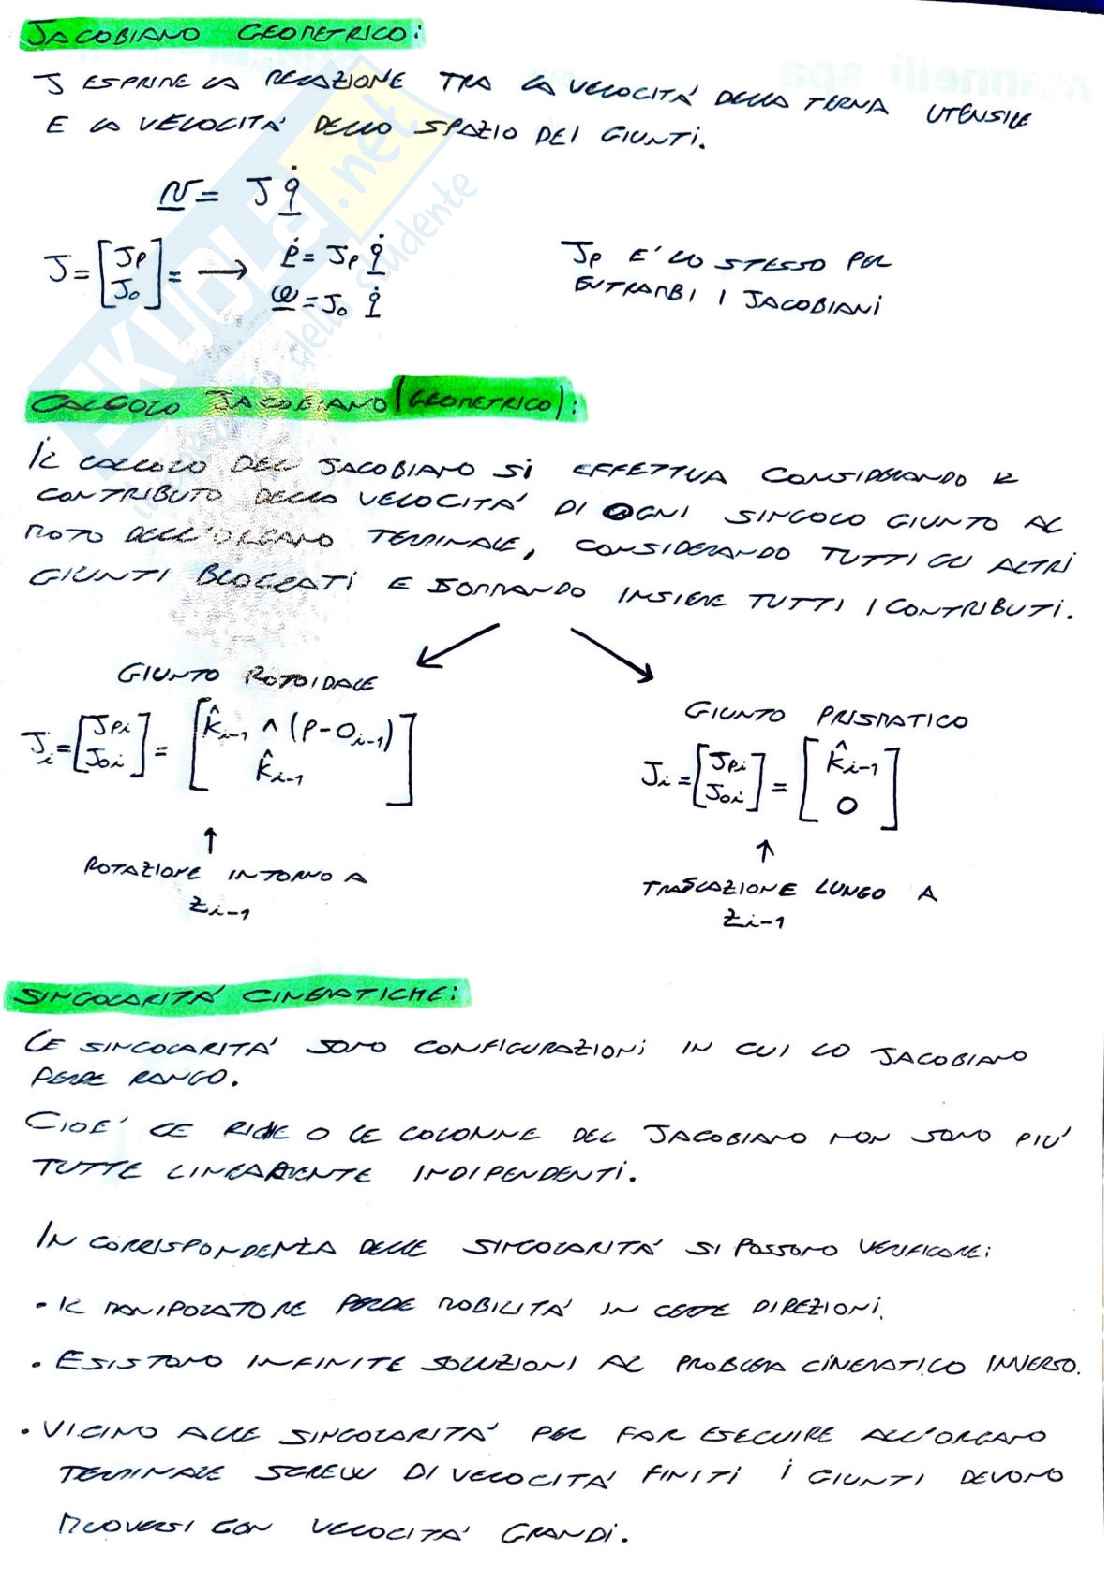 JACOBIANO GEOMETRICO:
J ESPRIME LA RELAZIONE TRA LA VELOCITÀ DELLA TERNA UTENSILE
E LA VELOCITÀ DELLO SPAZIO DEI GIUNTI.
v = J q̇
J = [Jp Jo] = → ṗ = Jp q̇
ω = Jo q̇
Jp E' LO STESSO PER
ENTRAMBI I JACOBIANI
CALCOLO JACOBIANO (GEOMETRICO):
IL CALCOLO DEL JACOBIANO SI EFFETTUA CONSIDERANDO IL
CONTRIBUTO DELLA VELOCITÀ DI OGNI SINGOLO GIUNTO AL
MOTO DELL'ORGANO TERMINALE, CONSIDERANDO TUTTI GLI ALTRI
GIUNTI BLOCCATI E SOMMANDO INSIEME TUTTI I CONTRIBUTI.
GIUNTO ROTOIDALE
Ji = [Jpi Joi] = [k̂i-1 ∧ (P-Oi-1) k̂i-1]
↑
ROTAZIONE INTORNO A
zi-1
GIUNTO PRISMATICO
Ji = [Jpi Joi] = [k̂i-1 0]
↑
TRASLAZIONE LUNGO A
zi-1
SINGOLARITÀ CINEMATICHE:
LE SINGOLARITÀ SONO CONFIGURAZIONI IN CUI LO JACOBIANO
PERDE RANGO.
CIOE' LE RIGHE O LE COLONNE DEL JACOBIANO NON SONO PIU'
TUTTE LINEARMENTE INDIPENDENTI.
IN CORRISPONDENZA DELLE SINGOLARITÀ SI POSSONO VERIFICARE:
• IL MANIPOLATORE PERDE MOBILITÀ IN CERTE DIREZIONI.
• ESISTONO INFINITE SOLUZIONI AL PROBLEMA CINEMATICO INVERSO.
• VICINO ALLE SINGOLARITÀ PER FAR ESEGUIRE ALL'ORGANO
TERMINALE SCREW DI VELOCITÀ FINITI I GIUNTI DEVONO
MUOVERSI CON VELOCITÀ GRANDI.
SKUOLA.net